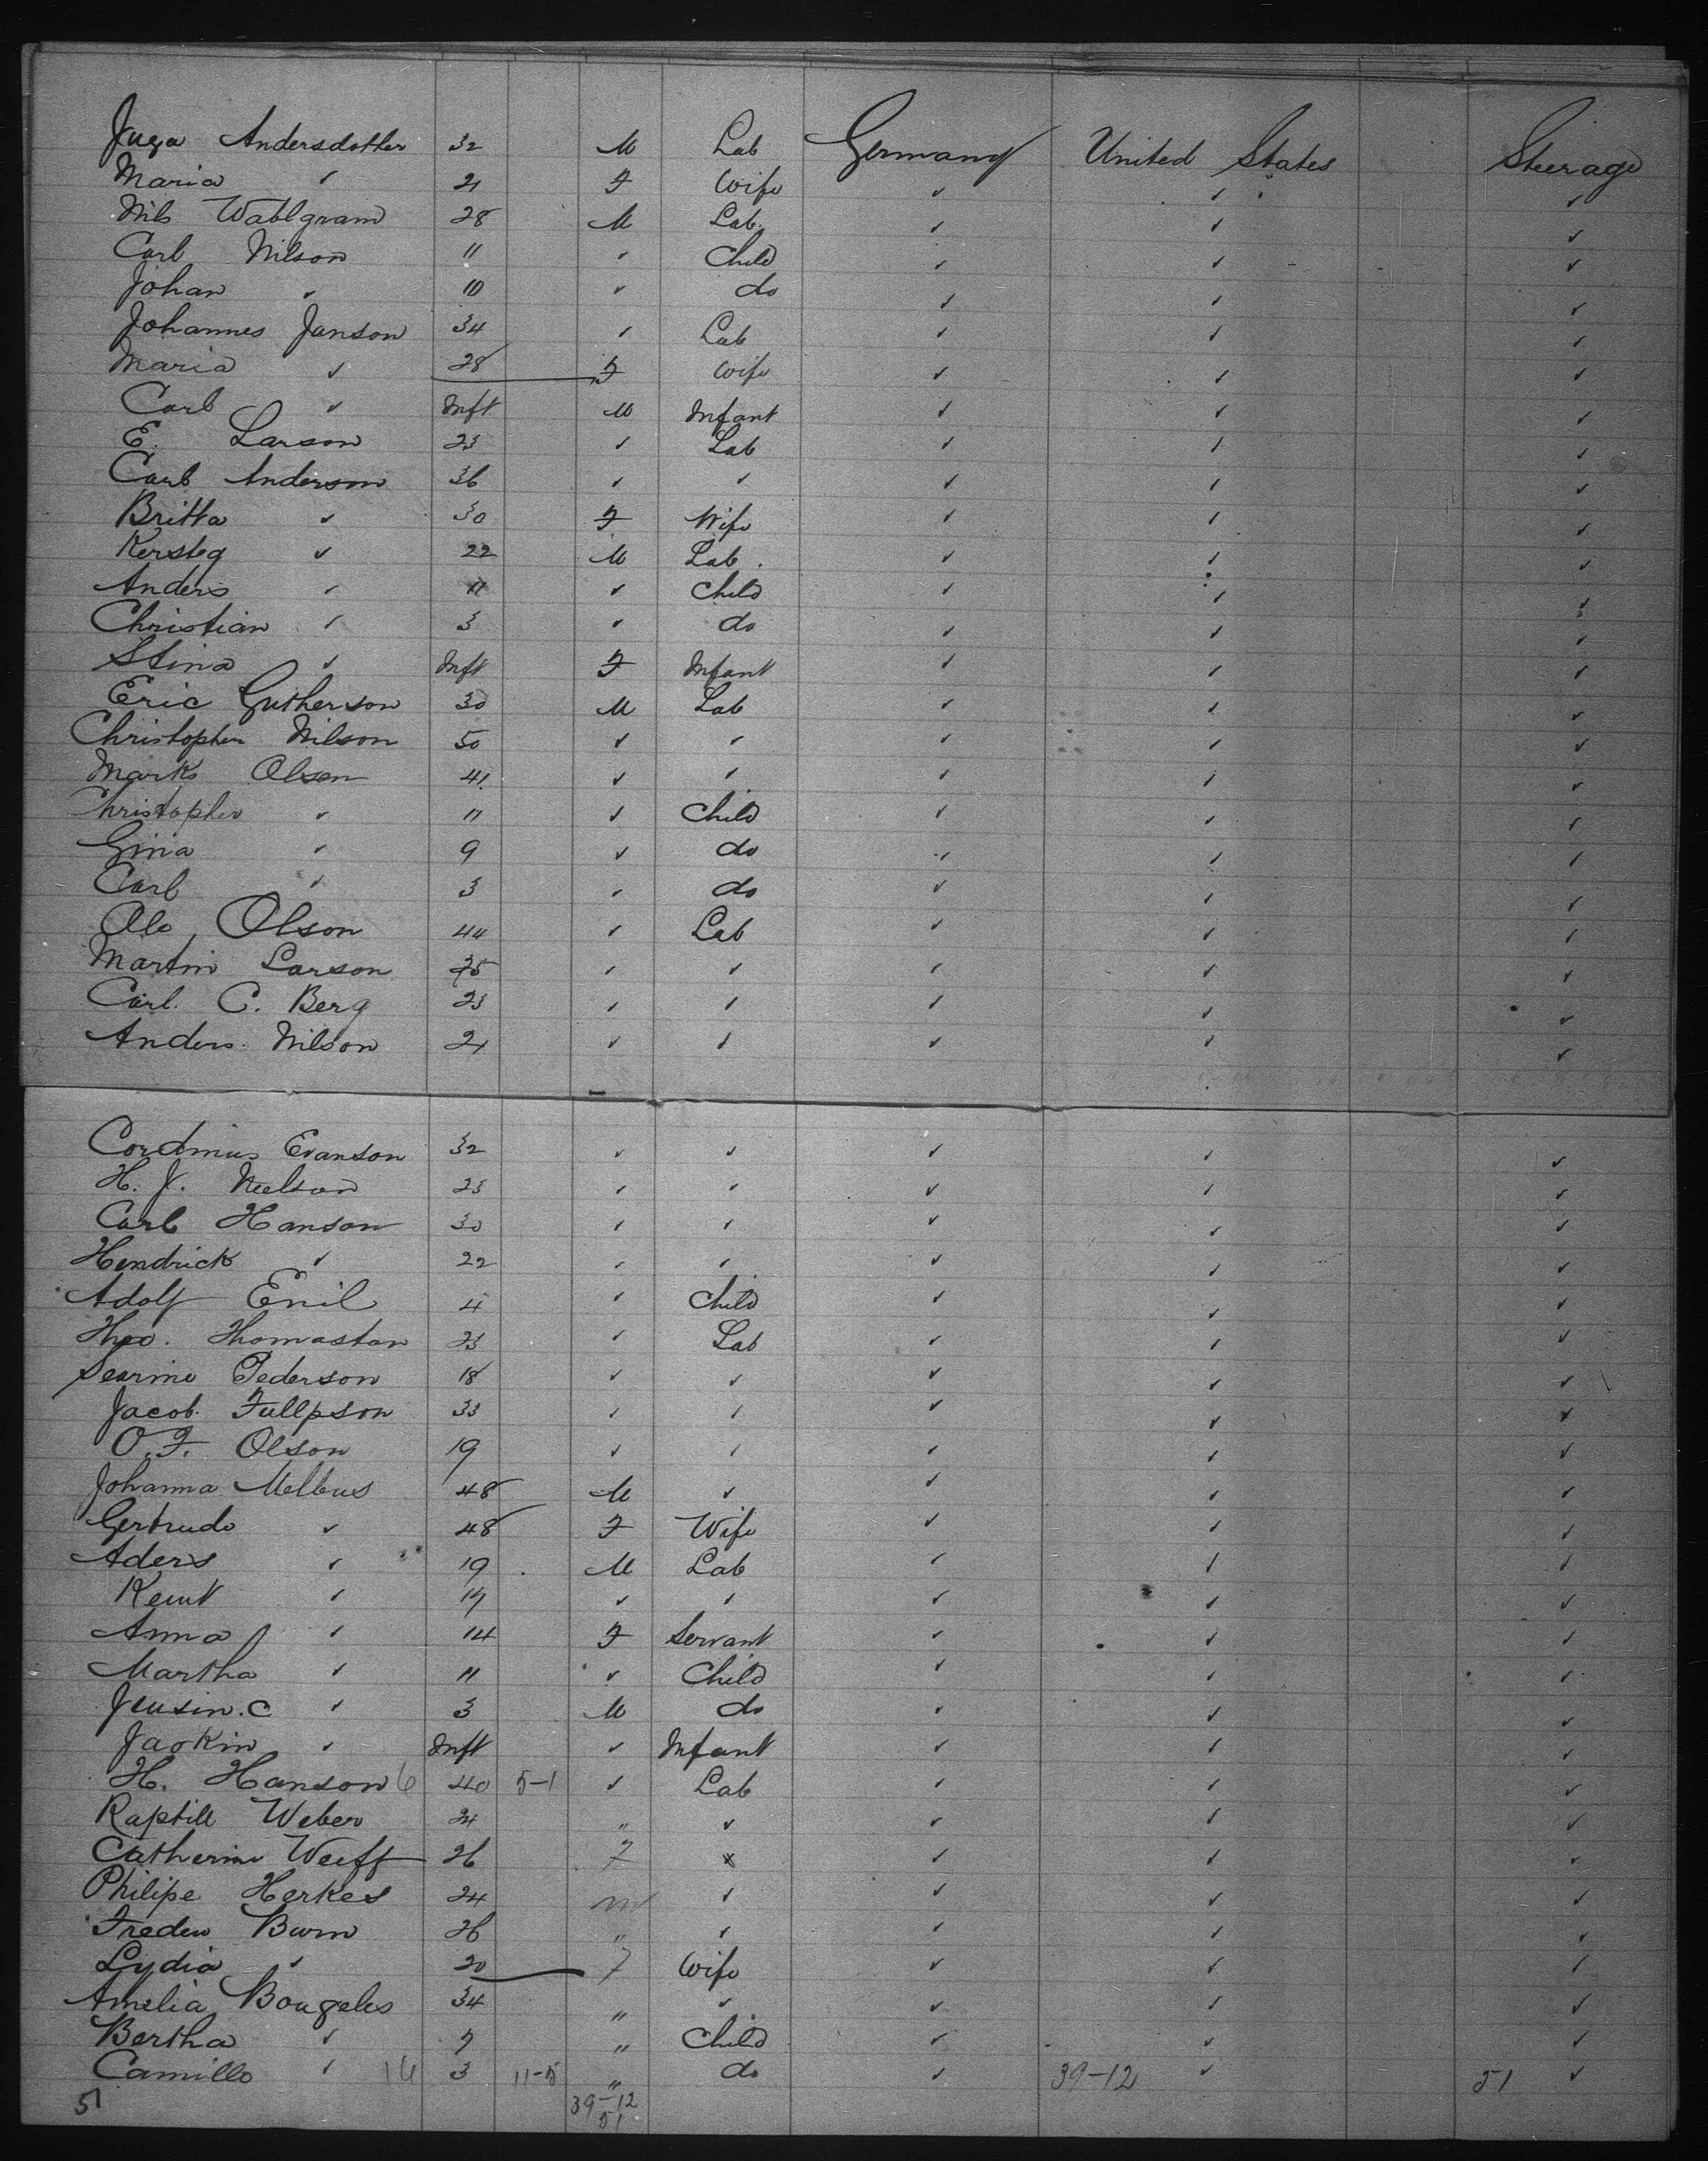 Juga Andersdotter 32 M Lab Germany United States Steerage
Maria ✓ 21 F Wife ✓ ✓ ✓
Nils Wahlgram 28 M Lab. ✓ ✓ ✓
Carl Nilson 11 ✓ Child ✓ ✓ ✓
Johan ✓ 10 ✓ do ✓ ✓ ✓
Johannes Janson 34 ✓ Lab ✓ ✓ ✓
Maria ✓ 28 F Wife ✓ ✓ ✓
Carl ✓ Inft M Infant ✓ ✓ ✓
E. Larson 23 ✓ Lab ✓ ✓ ✓
Carl Anderson 36 ✓ ✓ ✓ ✓ ✓
Britta ✓ 30 F Wife ✓ ✓ ✓
Kersteg ✓ 22 M Lab. ✓ ✓ ✓
Anders ✓ 11 ✓ Child ✓ ✓ ✓
Christian ✓ 3 ✓ do ✓ ✓ ✓
Stina ✓ Inft F Infant ✓ ✓ ✓
Eric Gutherson 30 M Lab ✓ ✓ ✓
Christopher Nilson 50 ✓ ✓ ✓ ✓ ✓
Marks Olsen 41 ✓ ✓ ✓ ✓ ✓
Christopher ✓ 11 ✓ Child ✓ ✓ ✓
Gina ✓ 9 ✓ do ✓ ✓ ✓
Carl ✓ 3 ✓ do ✓ ✓ ✓
Ole Olson 44 ✓ Lab ✓ ✓ ✓
Martin Larson ✓ ✓ ✓ ✓ ✓
Carl. C. Berg 23 ✓ ✓ ✓ ✓ ✓
Anders Nilson 21 ✓ ✓ ✓ ✓ ✓
Evanson 32 ✓ ✓ ✓ ✓ ✓
H. J. Nelson 23 ✓ ✓ ✓ ✓ ✓
Carl Hanson 30 ✓ ✓ ✓ ✓ ✓
Hendrick ✓ 22 ✓ ✓ ✓ ✓ ✓
Adolf Emil 4 ✓ Child ✓ ✓ ✓
Theo. Thomastan 23 ✓ Lab ✓ ✓ ✓
Searine Pederson 18 ✓ ✓ ✓ ✓ ✓
Jacob. Fullpson 33 ✓ ✓ ✓ ✓ ✓
O. F. Olson 19 ✓ ✓ ✓ ✓ ✓
Johanna Melleus 48 M ✓ ✓ ✓ ✓
Gertrude ✓ 48 F Wife ✓ ✓ ✓
Aders ✓ 19 M Lab ✓ ✓ ✓
✓ 17 ✓ ✓ ✓ ✓ ✓
Anna ✓ 14 F Servant ✓ ✓ ✓
Martha ✓ 11 ✓ Child ✓ ✓ ✓
Jensin. C ✓ 3 M do ✓ ✓ ✓
Jaokin ✓ Inft ✓ Infant ✓ ✓ ✓
H. Hanson 6 40 5-1 ✓ Lab ✓ ✓ ✓
Raptill Weber 24 " ✓ ✓ ✓ ✓
Catherine Weiff 26 F x ✓ ✓ ✓
Philipe Herkes 24 m ✓ ✓ ✓ ✓
Freden Burn 26 " ✓ ✓ ✓ ✓
Lydia ✓ 20 F Wife ✓ ✓ ✓
Amelia Bougeles 34 " ✓ ✓ ✓ ✓
Bertha ✓ 7 " Child ✓ ✓ ✓
Camille ✓ 16 3 11-5 " do ✓ 39-12 ✓ 51 ✓
51 39-12
51